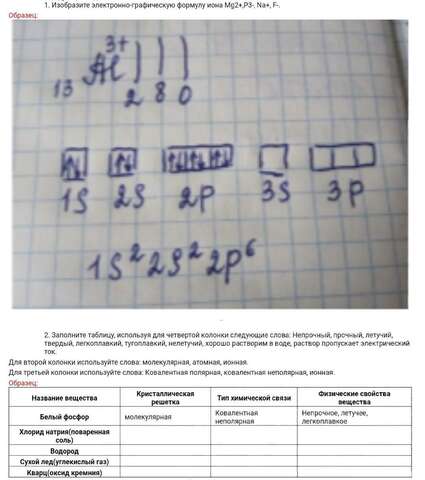 1. Изобразите электронно-графическую формулу иона Mg2+,P3-, Na+, F-.
Образец:
13 Al 3+ ) ) )
2 8 0
1S 2S 2P 3S 3P
1S² 2S² 2P⁶
2. Заполните таблицу, используя для четвертой колонки следующие слова: Непрочный, прочный, летучий,
твердый, легкоплавкий, тугоплавкий, нелетучий, хорошо растворим в воде, раствор пропускает электрический
ток.
Для второй колонки используйте слова: молекулярная, атомная, ионная.
Для третьей колонки используйте слова: Ковалентная полярная, ковалентная неполярная, ионная.
Образец:
Название вещества | Кристаллическая решетка | Тип химической связи | Физические свойства вещества
Белый фосфор | молекулярная | Ковалентная неполярная | Непрочное, летучее, легкоплавкое
Хлорид натрия(поваренная соль)
Водород
Сухой лед(углекислый газ)
Кварц(оксид кремния)